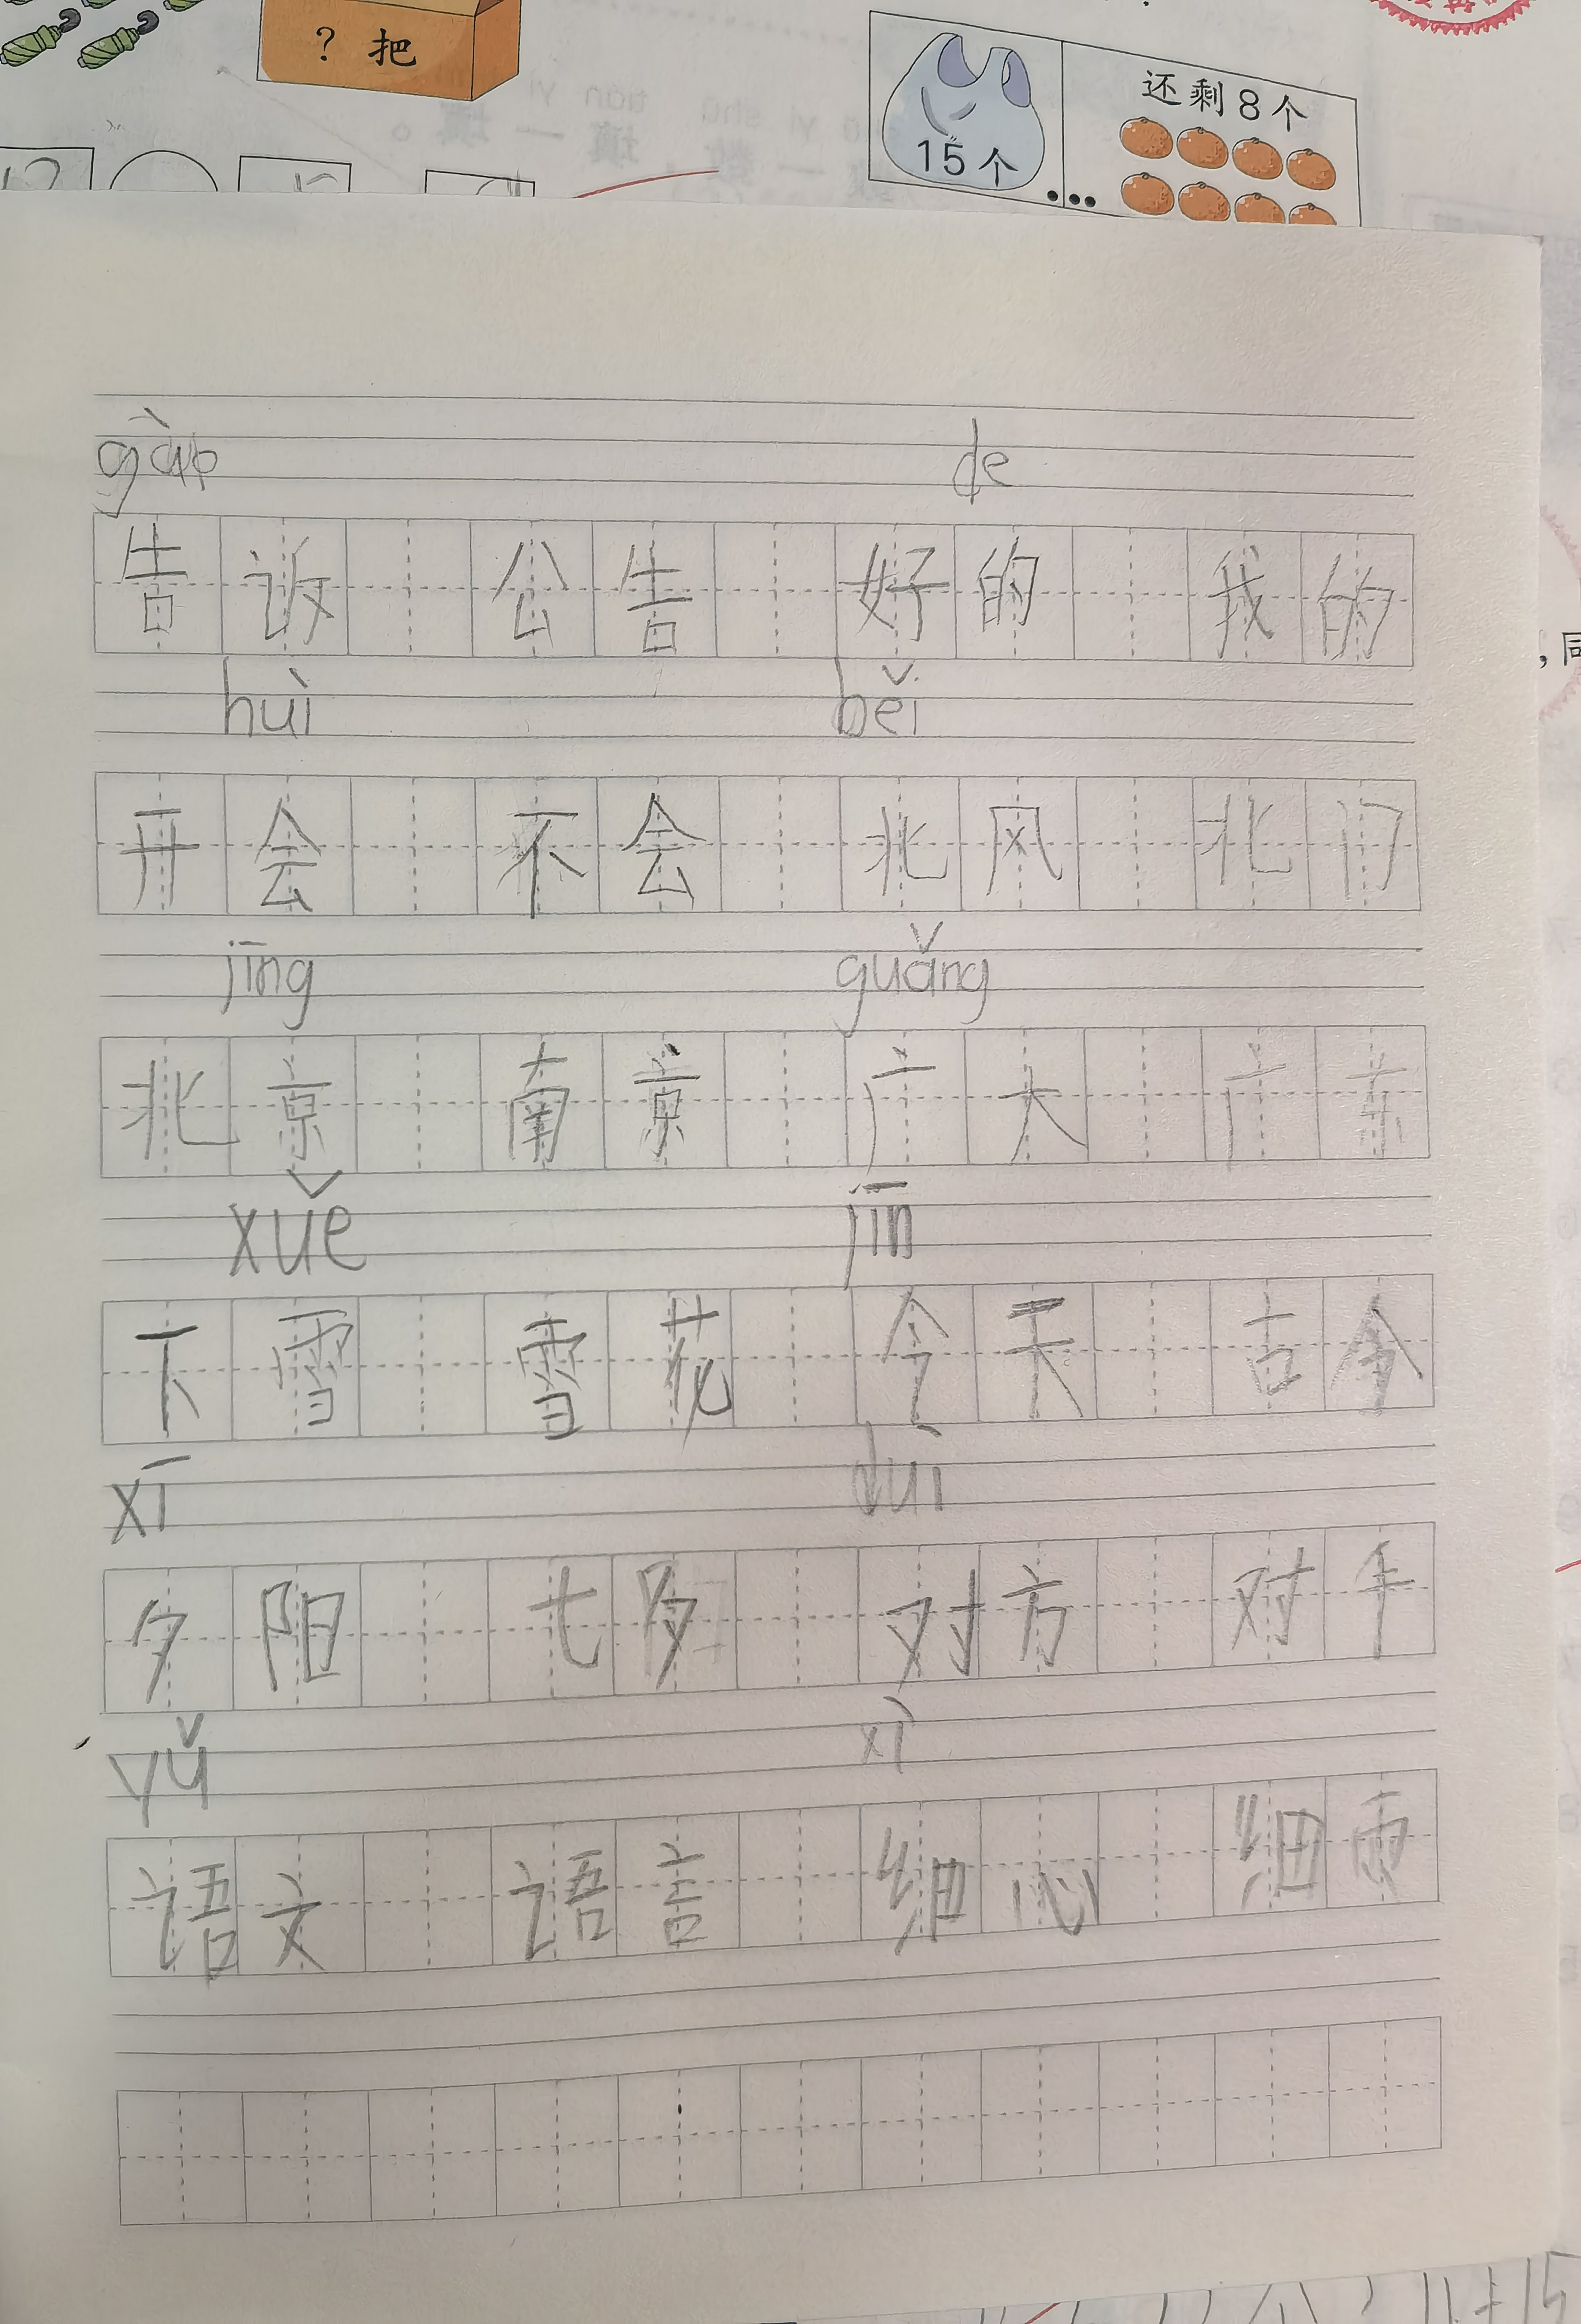 ? 把
15个
还剩8个
gào de
告诉 公告 好的 我的
huì běi
开会 不会 北风 北门
jīng guǎng
北京 南京 广大 广东
xuě jīn
下雪 雪花 今天 古今
xī duì
夕阳 七夕 对方 对手
yǔ xì
语文 语言 细心 细雨